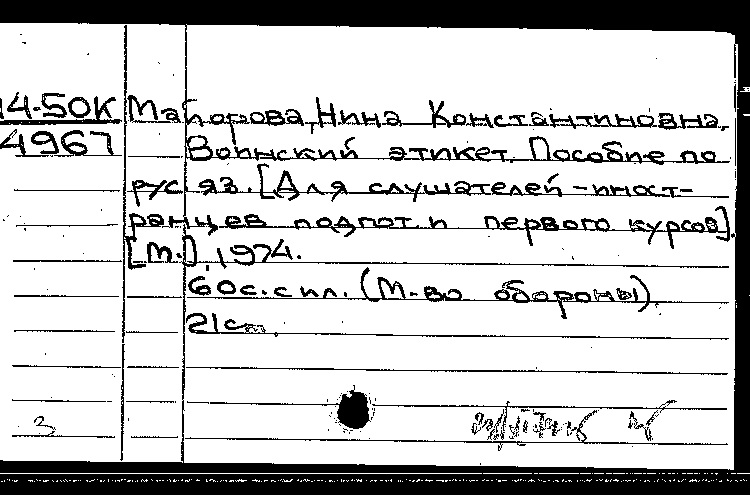 14-50К Майорова, Нина Константиновна.
4967 Воинский этикет. Пособие по
рус яз. [Для слушателей-иност-
ранцев подгот. и первого курсов].
[М.], 1974.
60с. с ил. (М-во обороны).
21см.
3